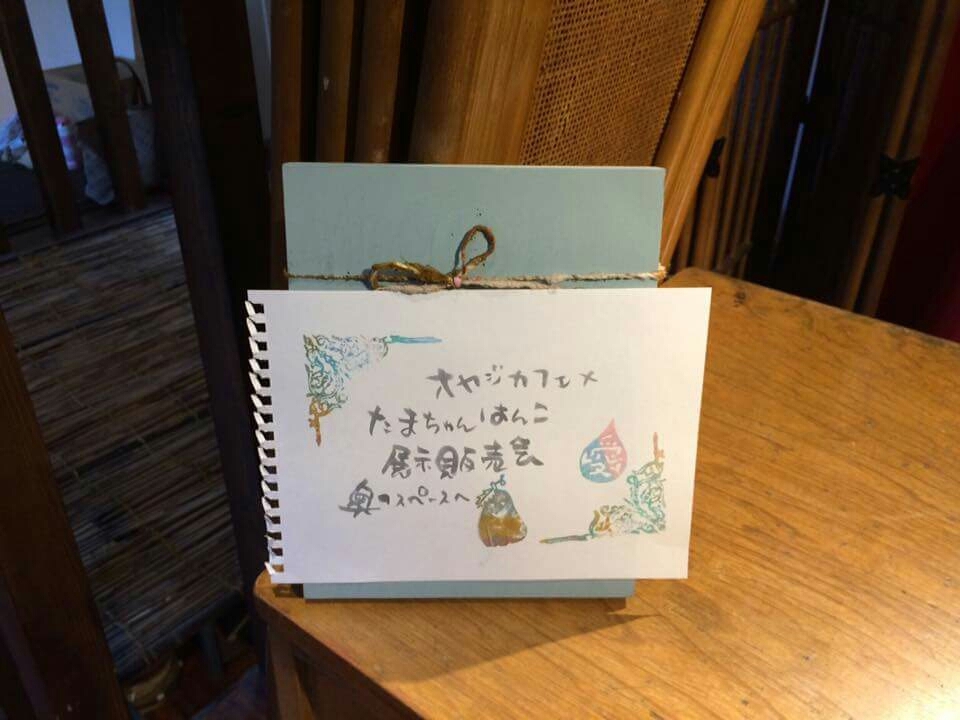 オヤジカフェ×
たまちゃんはんこ
展示販売会
奥のスペースへ
愛